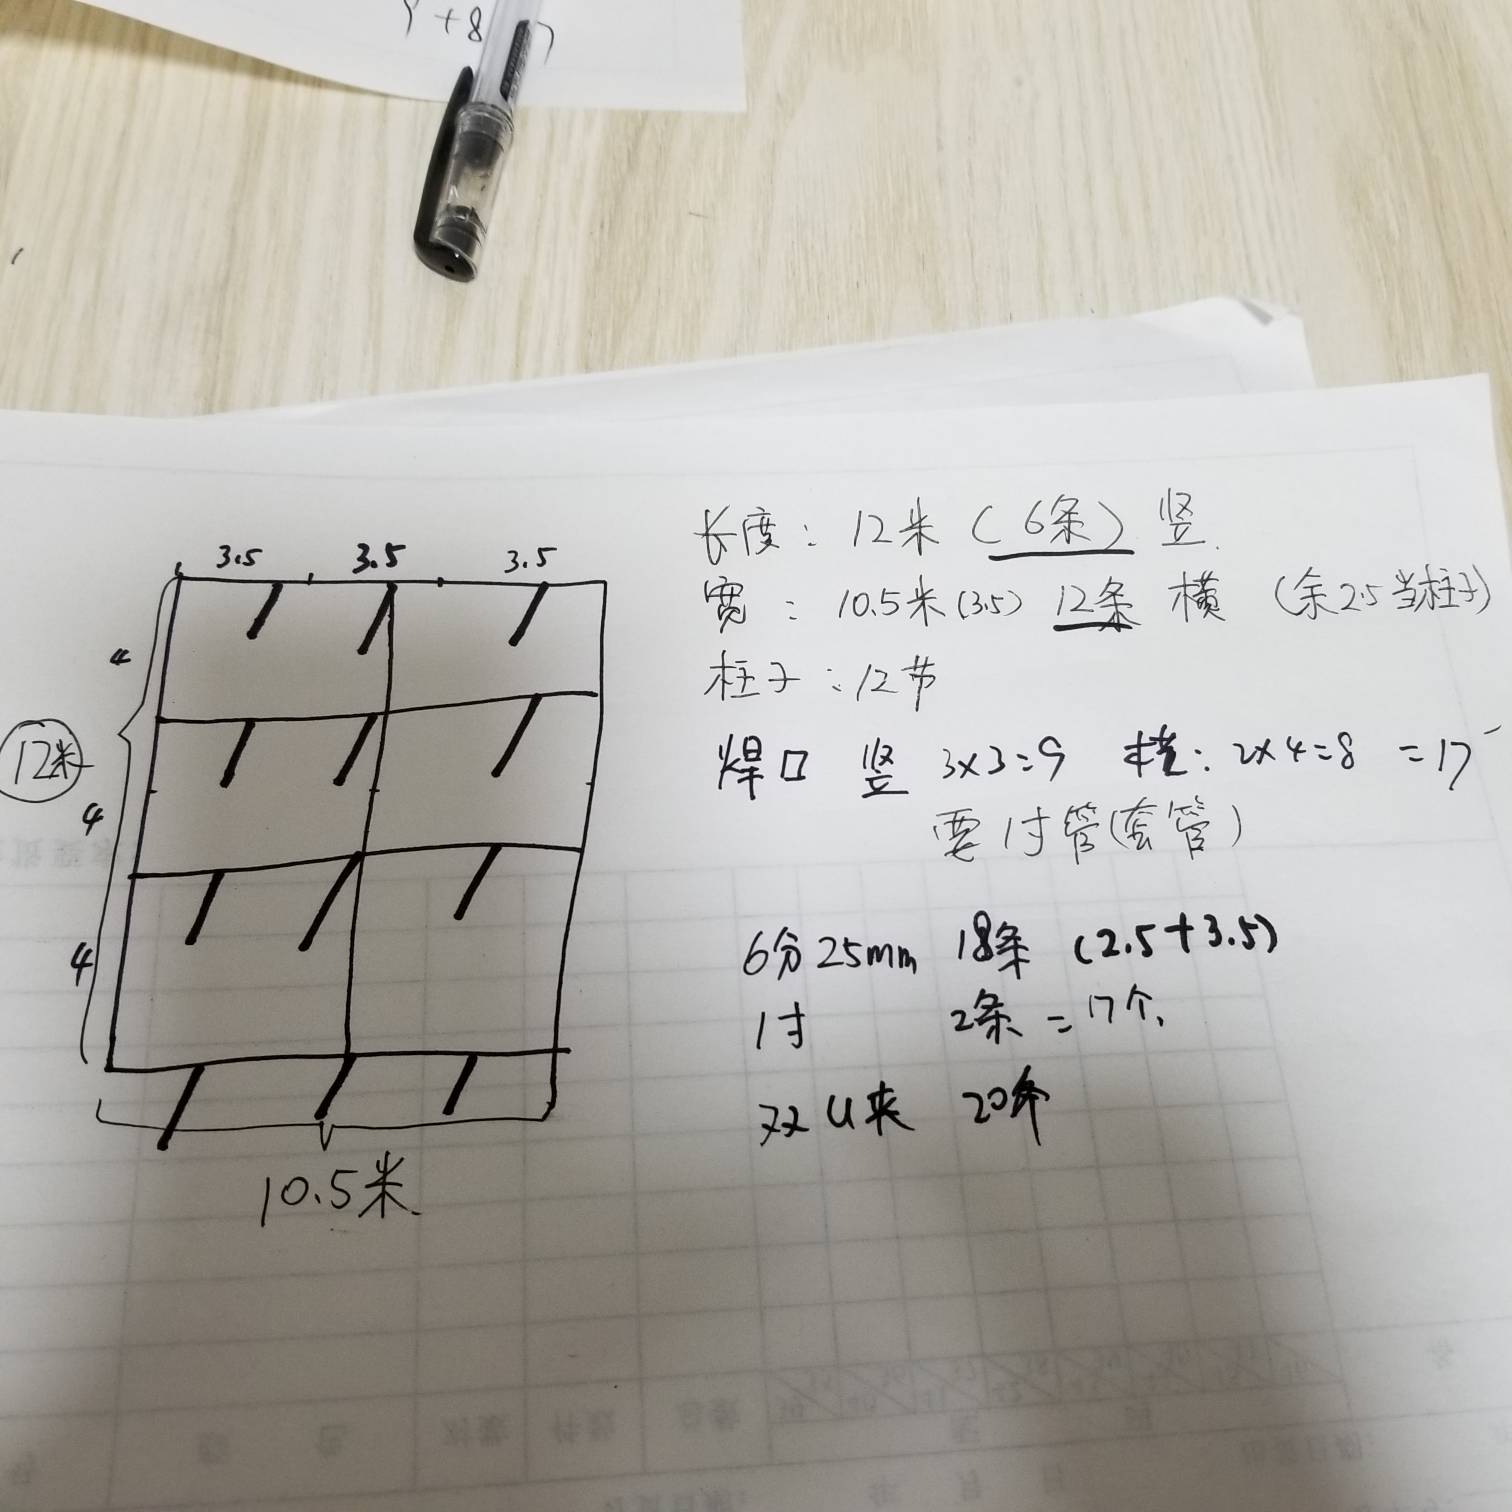 Y+8
3.5 3.5 3.5
4
12米
4
4
10.5米
长度: 12米 (6条) 竖.
宽: 10.5米(3.5) 12条 横 (余2.5当柱子)
柱子: 12节
焊口 竖 3×3=9 横: 2×4=8 =17
要1寸管(套管)
6分25mm 18条 (2.5+3.5)
1寸 2条 = 17个,
双U夹 20个